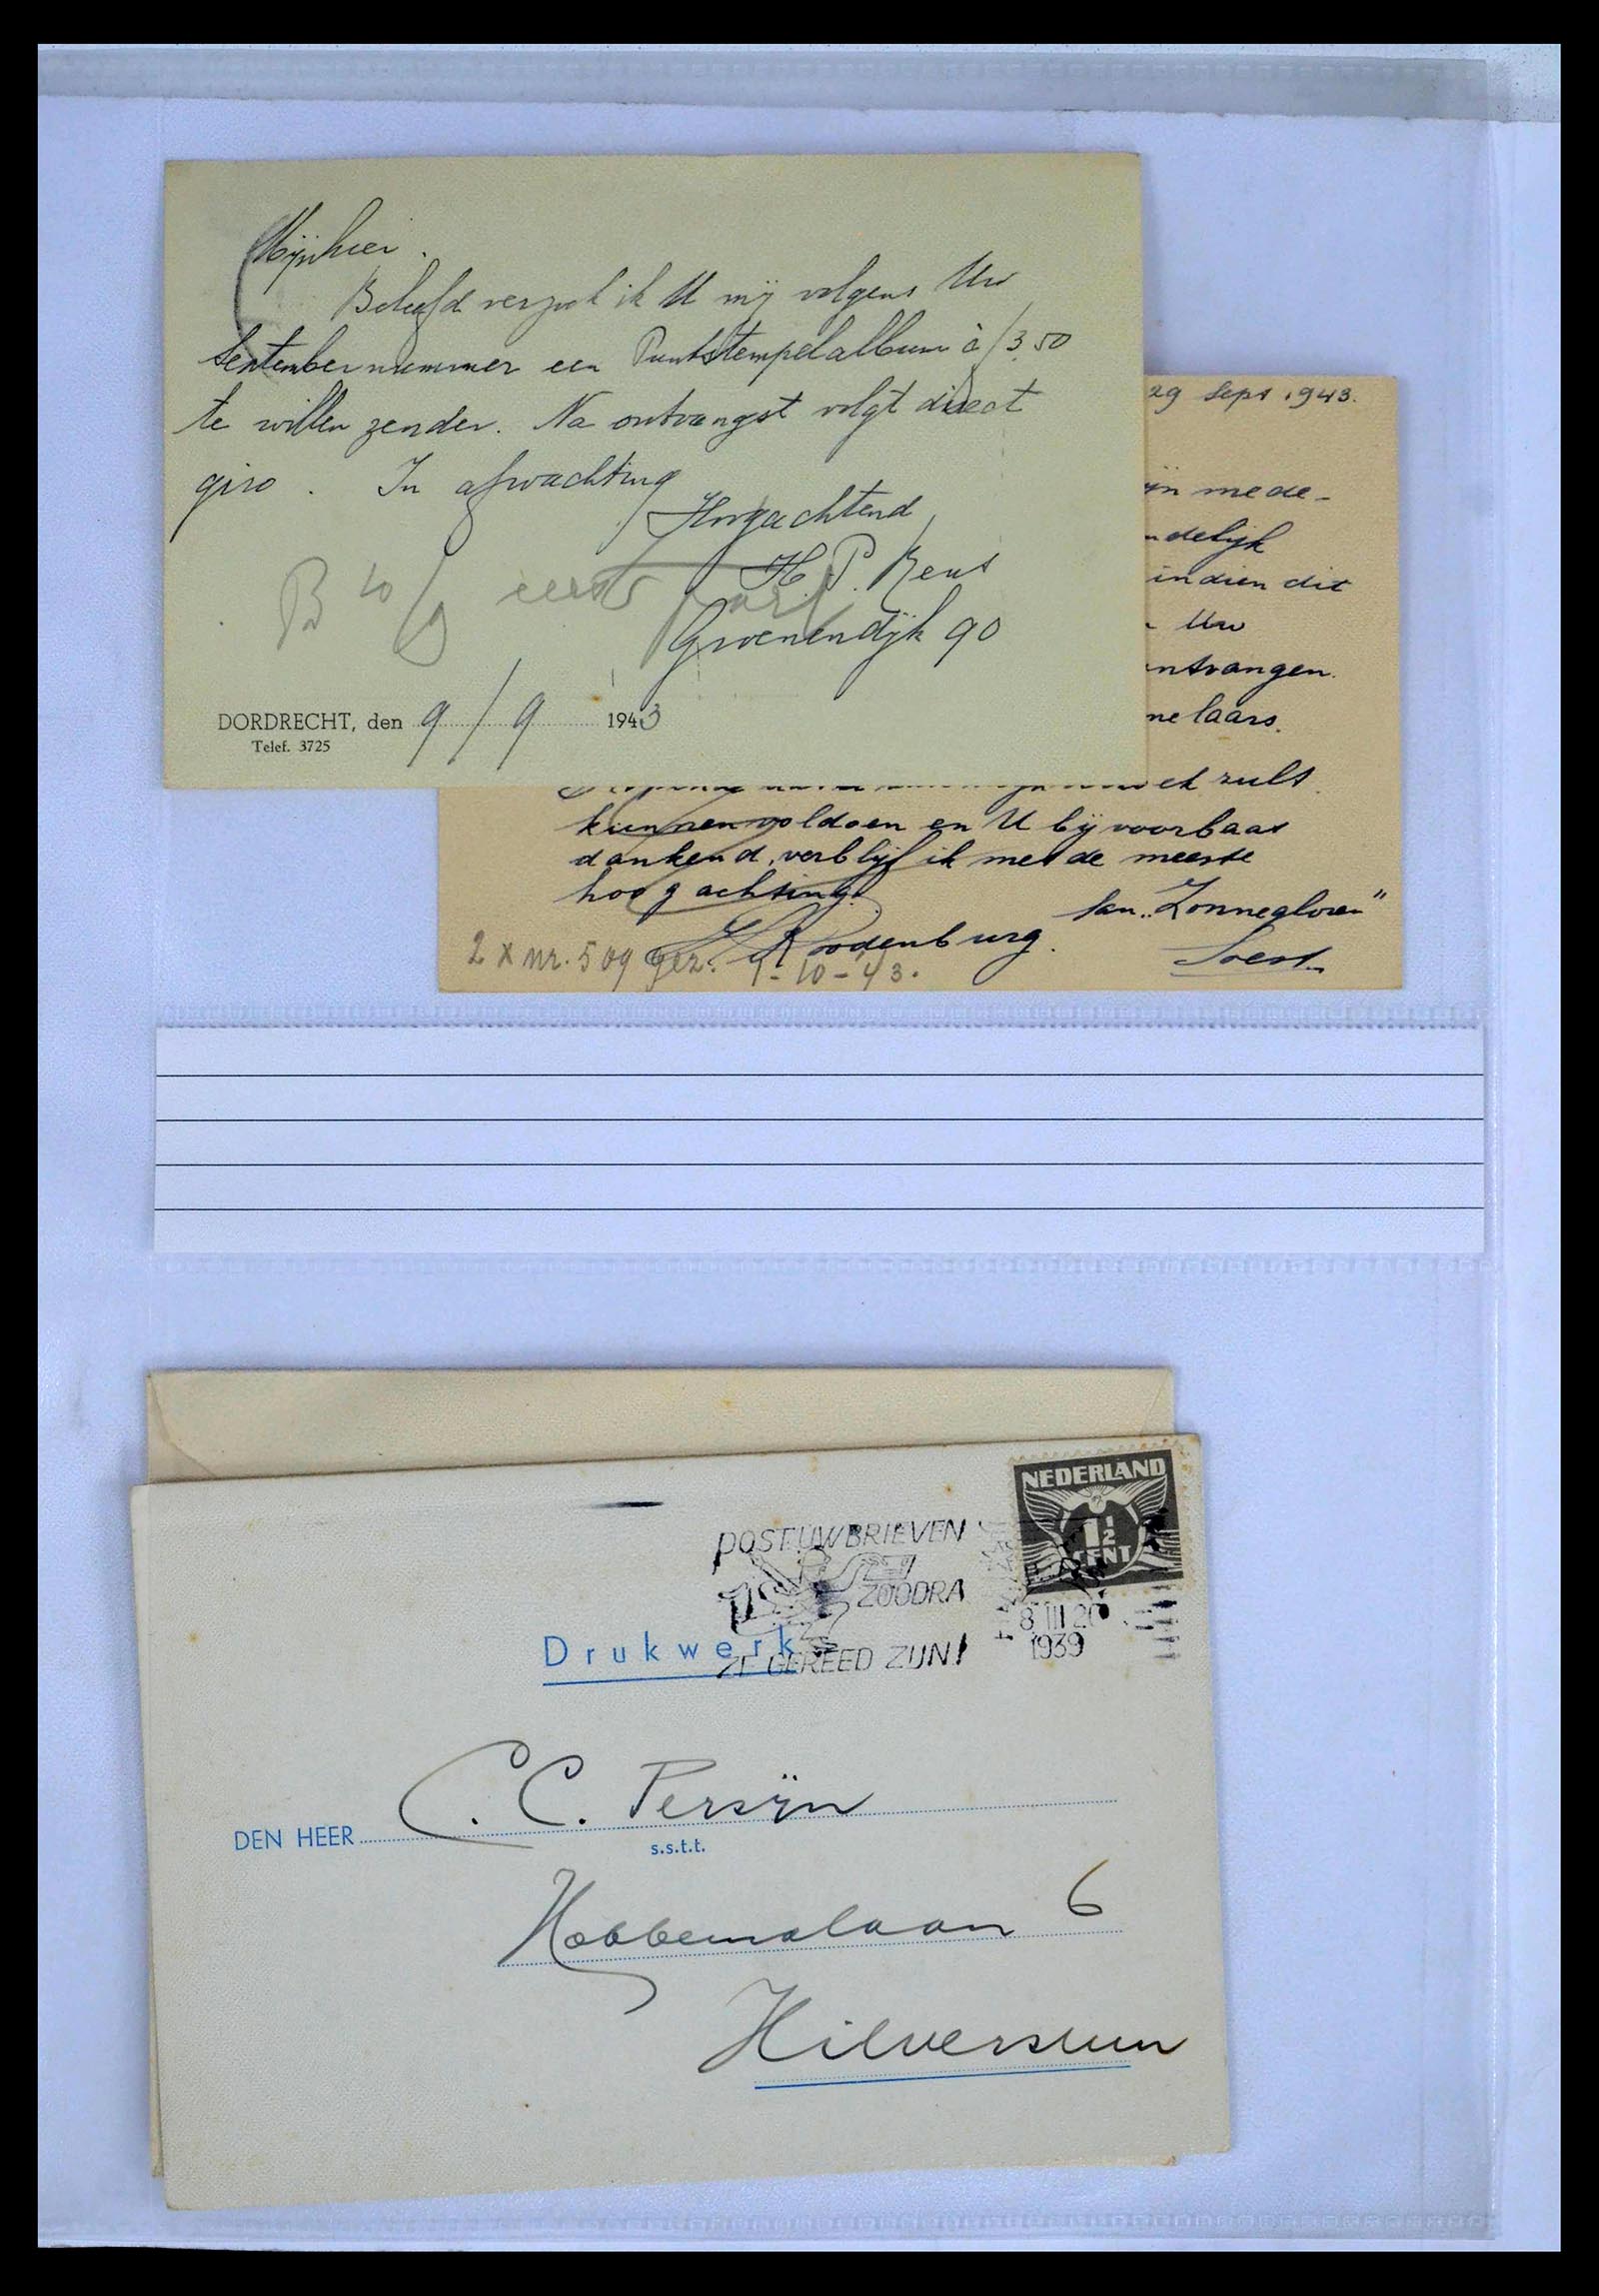 Mijnheer.
Beleefd verzoek ik U mij volgens Uw
Septembernummer een Puntstempelalbum à f 3.50
te willen zenden. Na ontvangst volgt direct
giro. In afwachting
Hoogachtend,
H. P.
Groenendijk 90
DORDRECHT, den 9/9 1943
Telef. 3725
29 Sept 1943.
ijn mede-
ndelijk
indien dit
Uw
ntvangen.
melaars.
zult
kunnen voldoen en U bij voorbaat
dankend, verblijf ik met de meeste
hoogachting.
San. „Zonnegloren"
Roodenburg.
Soest.
2 x nr. 509 gez. 1-10-'43.
NEDERLAND
1½
CENT
POST UW BRIEVEN
ZOODRA
ZE GEREED ZIJN!
8 III 20
1939
Drukwerk
DEN HEER C. C. Persijn
s.s.t.t.
Hobbemalaan 6
Hilversum